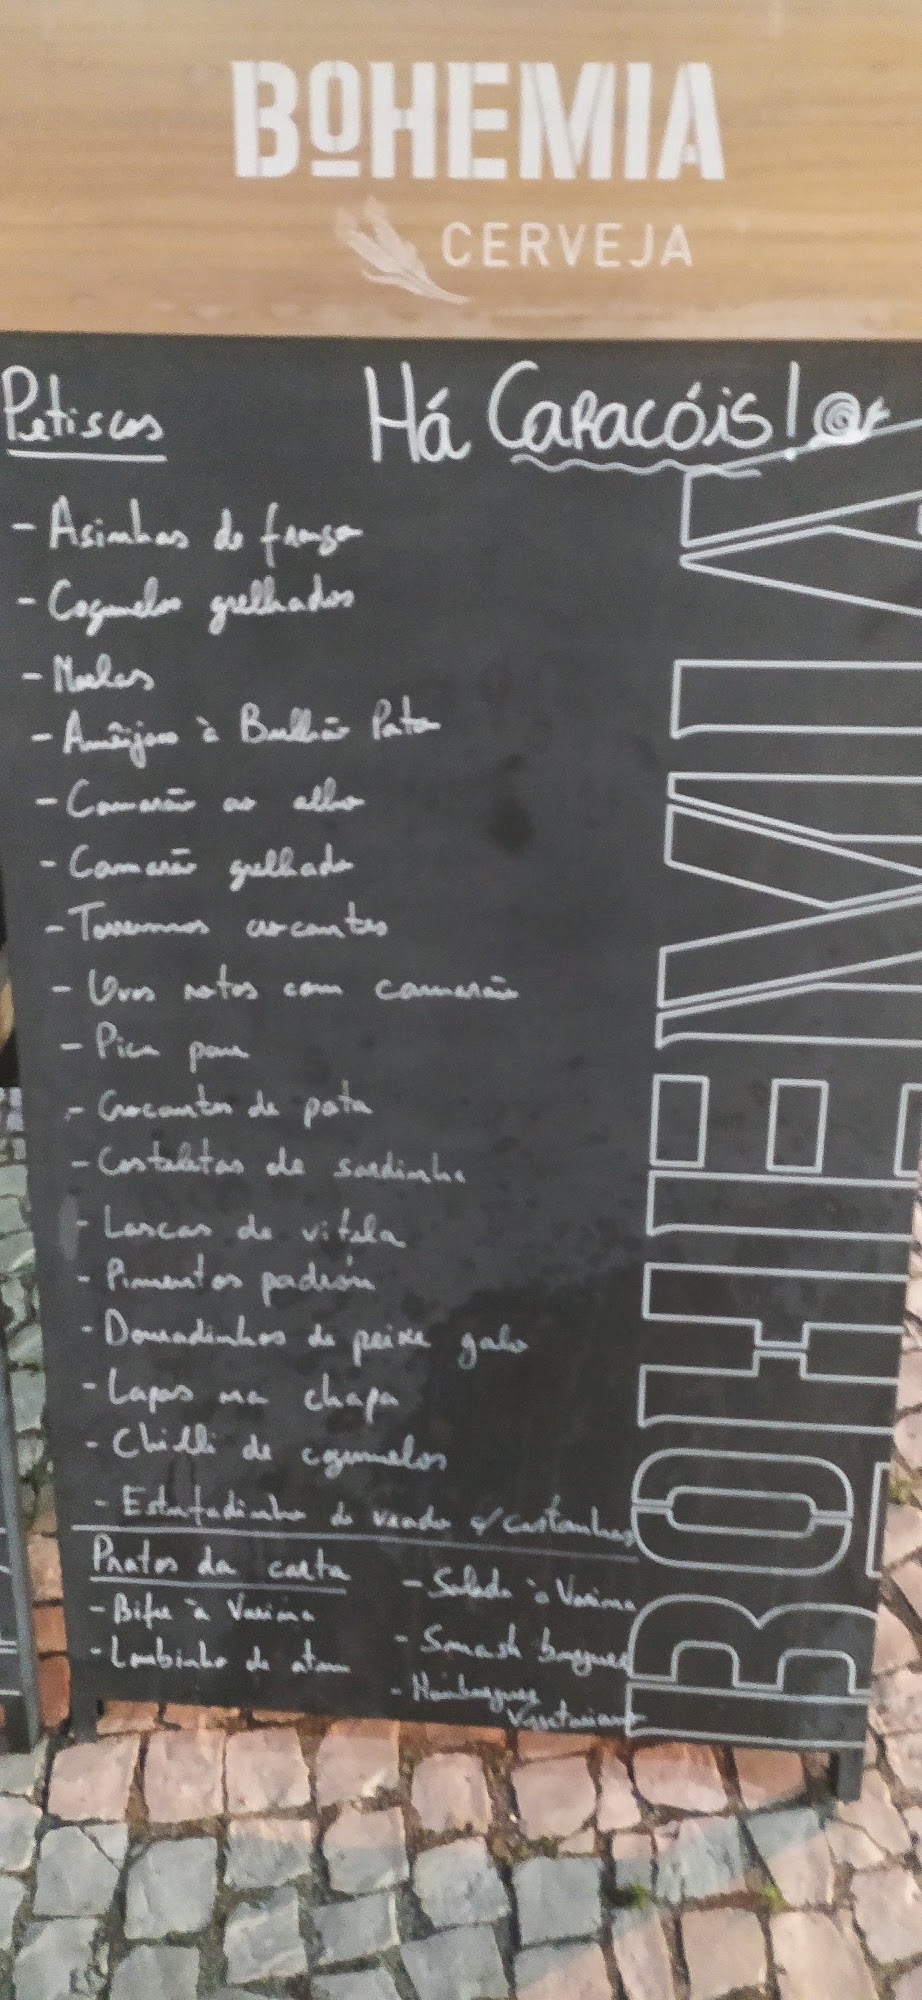 BOHEMIA
CERVEJA
Petiscos
Há Caracóis!
- Asinhas de frango
- Cogumelos grelhados
- Moelas
- Amêijoas à Bulhão Pato
- Camarão ao alho
- Camarão grelhado
- Torresmos crocantes
- Ovos rotos com camarão
- Pica pau
- Crocantes de pota
- Costeletas de sardinha
- Lascas de vitela
- Pimentos padrón
- Douradinhos de peixe galo
- Lapas na chapa
- Chilli de cogumelos
- Estufadinho de veado c/ castanhas
Pratos da carta
- Bife à Varina
- Lombinho de atum
- Salada à Varina
- Smash burguer
- Hamburguer
Vegetariano
BOHEMIA